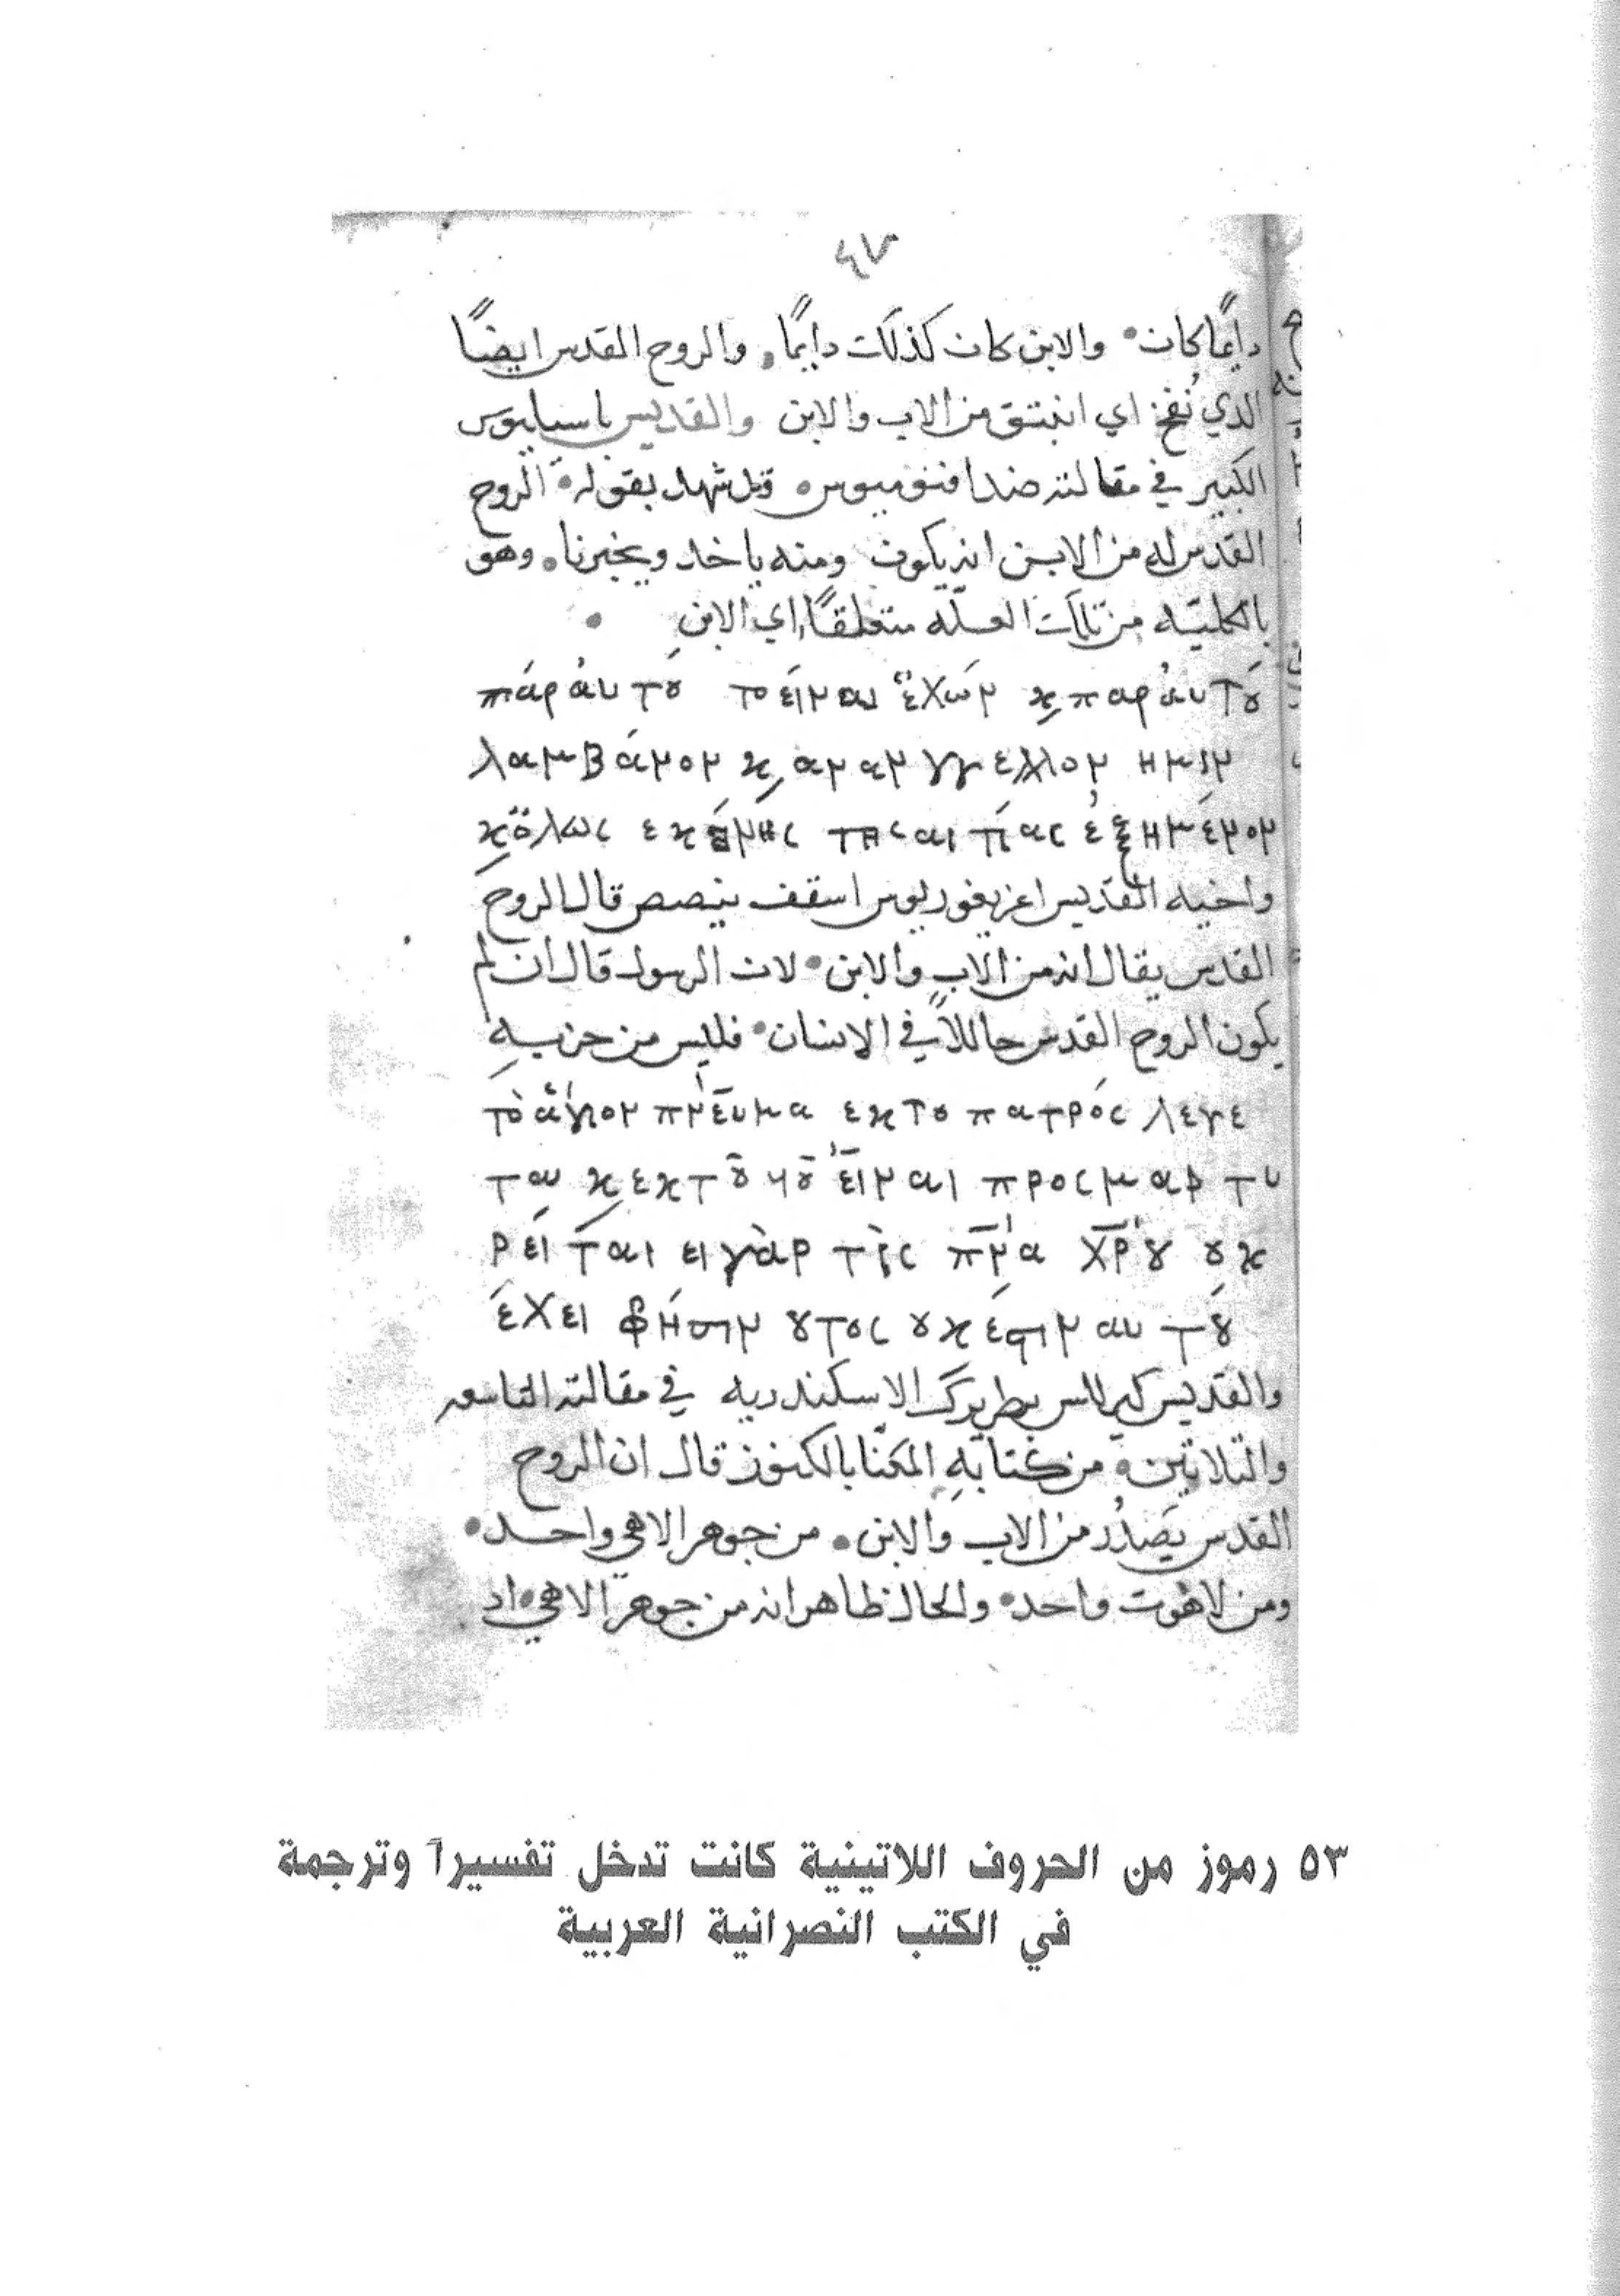 ٤٧
دايمًا كان والابن كان كذلك دايمًا. والروح القدس ايضًا
الذي نُفخ اي انبثق من الاب والابن والقديس باسيليوس
الكبير في مقالته ضد افنوميوس قد شهد بقوله الروح
القدس له من الابن انه يكون ومنه ياخد ويخبرنا. وهو
بالكليّه من تلك العلّه متعلقًا اي الابنِ
πάρ ἀυτȣ́ το εἶναι ἔχων ϗ παρ ἀυτȣ́
λαμβάνον ϗ αναν γγελλον ημιν
ϗ ὅλως εκ της αιτίας ἐξημένον
واخيه القديس اغريغوريوس اسقف نيصص قال الروح
القدس يقال انه من الاب والابن لان الرسول قال ان لم
يكون الروح القدس حاللاً في الانسان فليس من حزبيهِ
τὸ ἅγιον πνεῦμα εκ τȣ πατρός λεγε
ται ϗ εκ τȣ͂ υȣ͂ εἶναι προσμαρτυ
ρείται ει γὰρ τὶς πν̅α χρ̅ȣ ȣκ
έχει φησιν ȣτος ȣκ έστιν αυτȣ́
والقديس كيرللس بطريرك الاسكندريه في مقالته التاسعه
والتلاتين من كتابهِ المكنّا بالكنوز قال ان الروح
القدس يَصدُر من الاب والابن. من جوهر الاهي واحد
ومن لاهوت واحد والحال ظاهر انه من جوهر الاهي اد
٥٣ رموز من الحروف اللاتينية كانت تدخل تفسيراً وترجمة
في الكتب النصرانية العربية